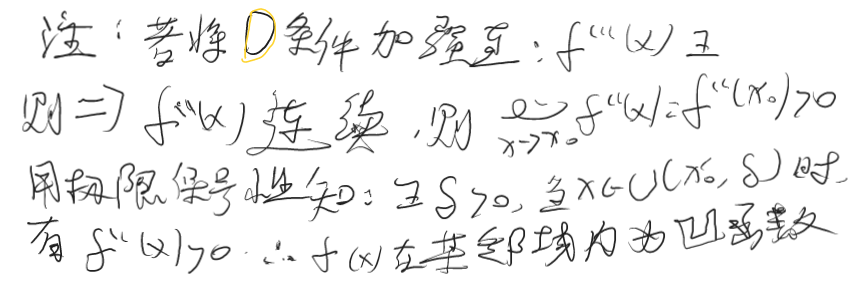 注:若将D条件加强至:f'''(x)∃
则⇒f''(x)连续,则 lim x→x₀ f''(x)=f''(x₀)>0
用极限保号性知:∃δ>0,当x∈U(x₀,δ)时,
有f''(x)>0.∴f(x)在某邻域内为凹函数